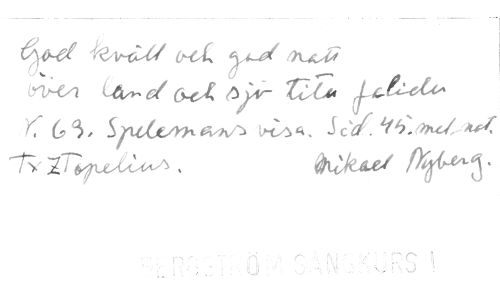 God kväll och god natt
över land och sjö titu falidu
N. 69. Spelemans visa. Sid. 45. med not.
Tx ZTopelius. Mikael Nyberg.
BERGSTRÖM SÅNGKURS I